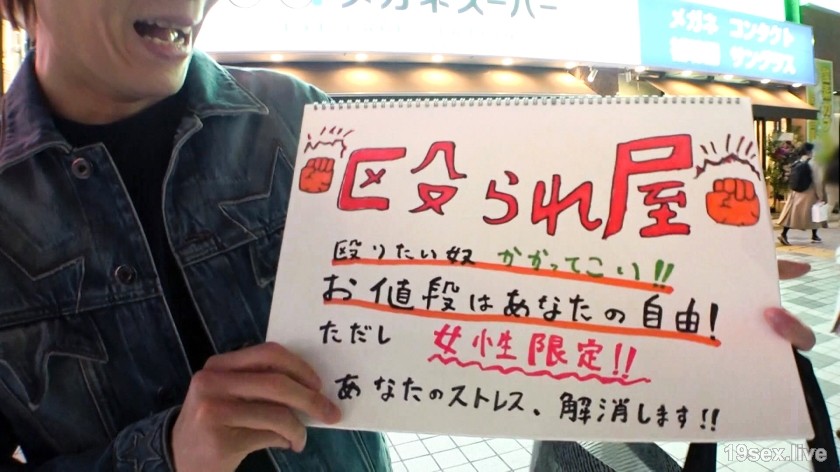 メガネスーパー
メガネ コンタクト
サングラス
殴られ屋
殴りたい奴 かかってこい!!
お値段はあなたの自由!
ただし 女性限定!!
あなたのストレス、解消します!!
19sex.live